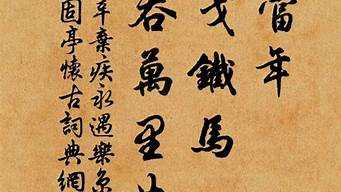 當年
戈鐵馬
吞萬里
辛棄疾永遇樂京
固亭懷古詞典網